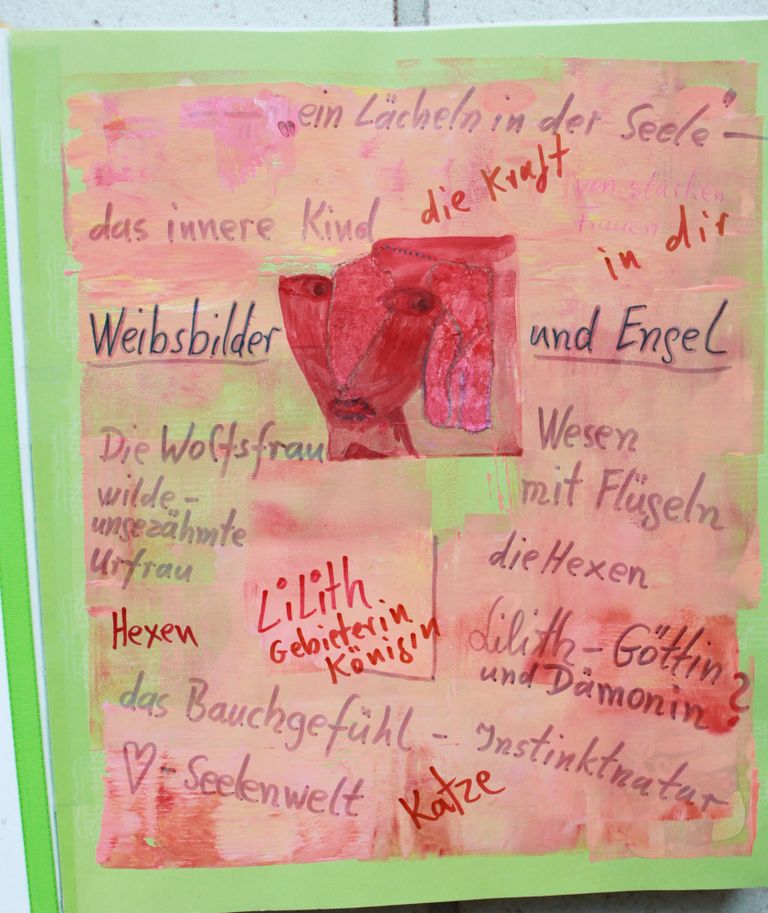 „ein Lächeln in der Seele" –
die Kraft
von starken
Frauen
in dir
das innere Kind
Weibsbilder und Engel
Die Wolfsfrau
wilde-
ungezähmte
Urfrau
Wesen
mit Flügeln
die Hexen
Hexen
LiLith
Gebieterin
Königin
Lilith - Göttin
und Dämonin?
das Bauchgefühl - Instinktnatur
♡ - Seelenwelt
Katze